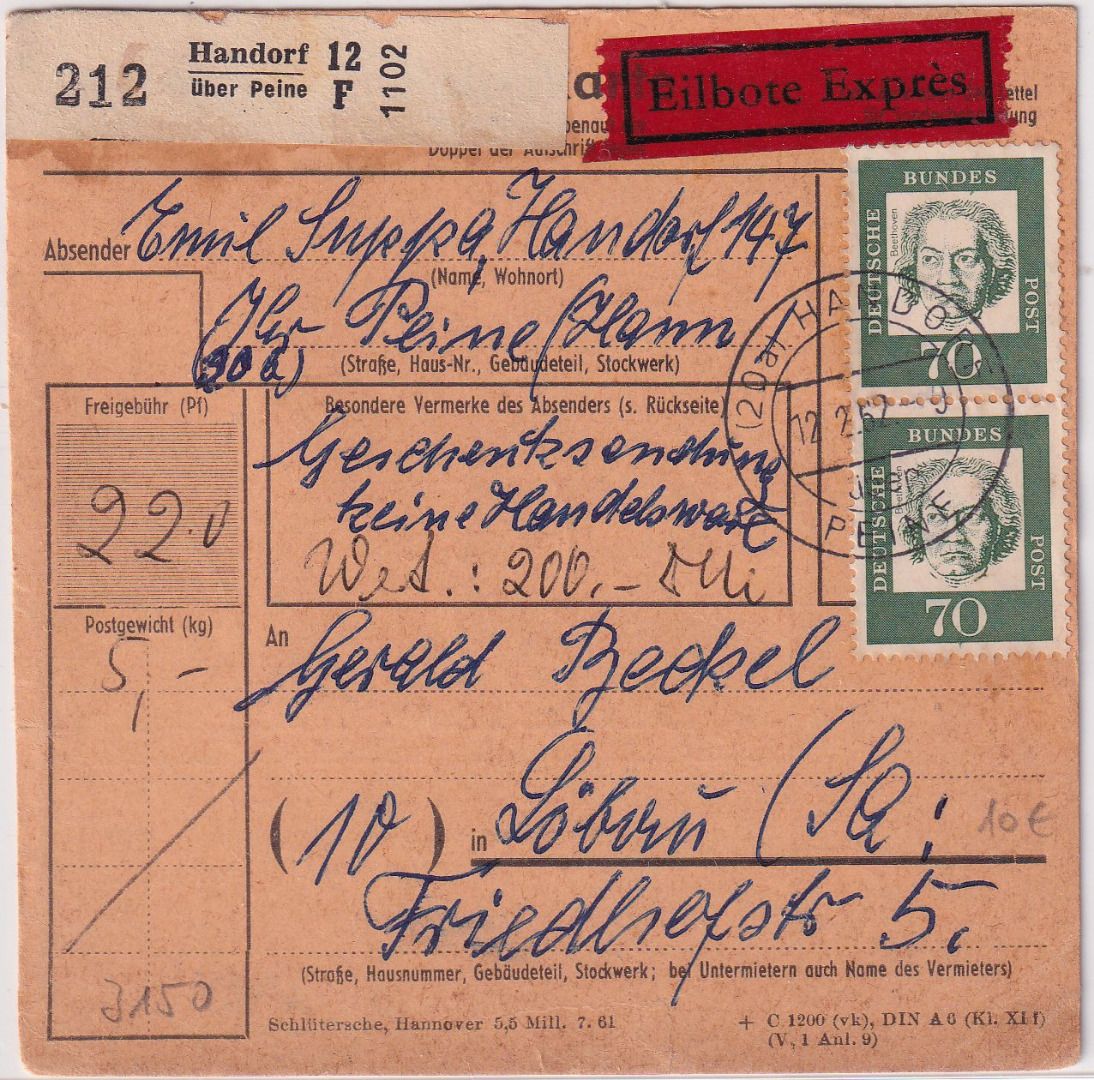 212 Handorf 12
über Peine F 1102
Eilbote Exprès
Doppel der Aufschrift
Absender Emil Suppa, Handorf 147
(Name, Wohnort)
Peine /Hann
(20a)
(Straße, Haus-Nr., Gebäudeteil, Stockwerk)
BUNDES
DEUTSCHE
POST
Beethoven
70
BUNDES
DEUTSCHE
POST
Beethoven
70
(20a) HANDO
12.2.62
über
PEINE
Freigebühr (Pf)
220
Besondere Vermerke des Absenders (s. Rückseite)
Geschenksendung
keine Handelsware
Wert.: 200,-
Postgewicht (kg)
5,-
An
Gerald Beckel
(10) in Löbau (Sa:
10€
Friedhofstr 5.
(Straße, Hausnummer, Gebäudeteil, Stockwerk; bei Untermietern auch Name des Vermieters)
3150
Schlütersche, Hannover 5,5 Mill. 7. 61
+ C 1200 (vk), DIN A 6 (Kl. XI f)
(V, 1 Anl. 9)